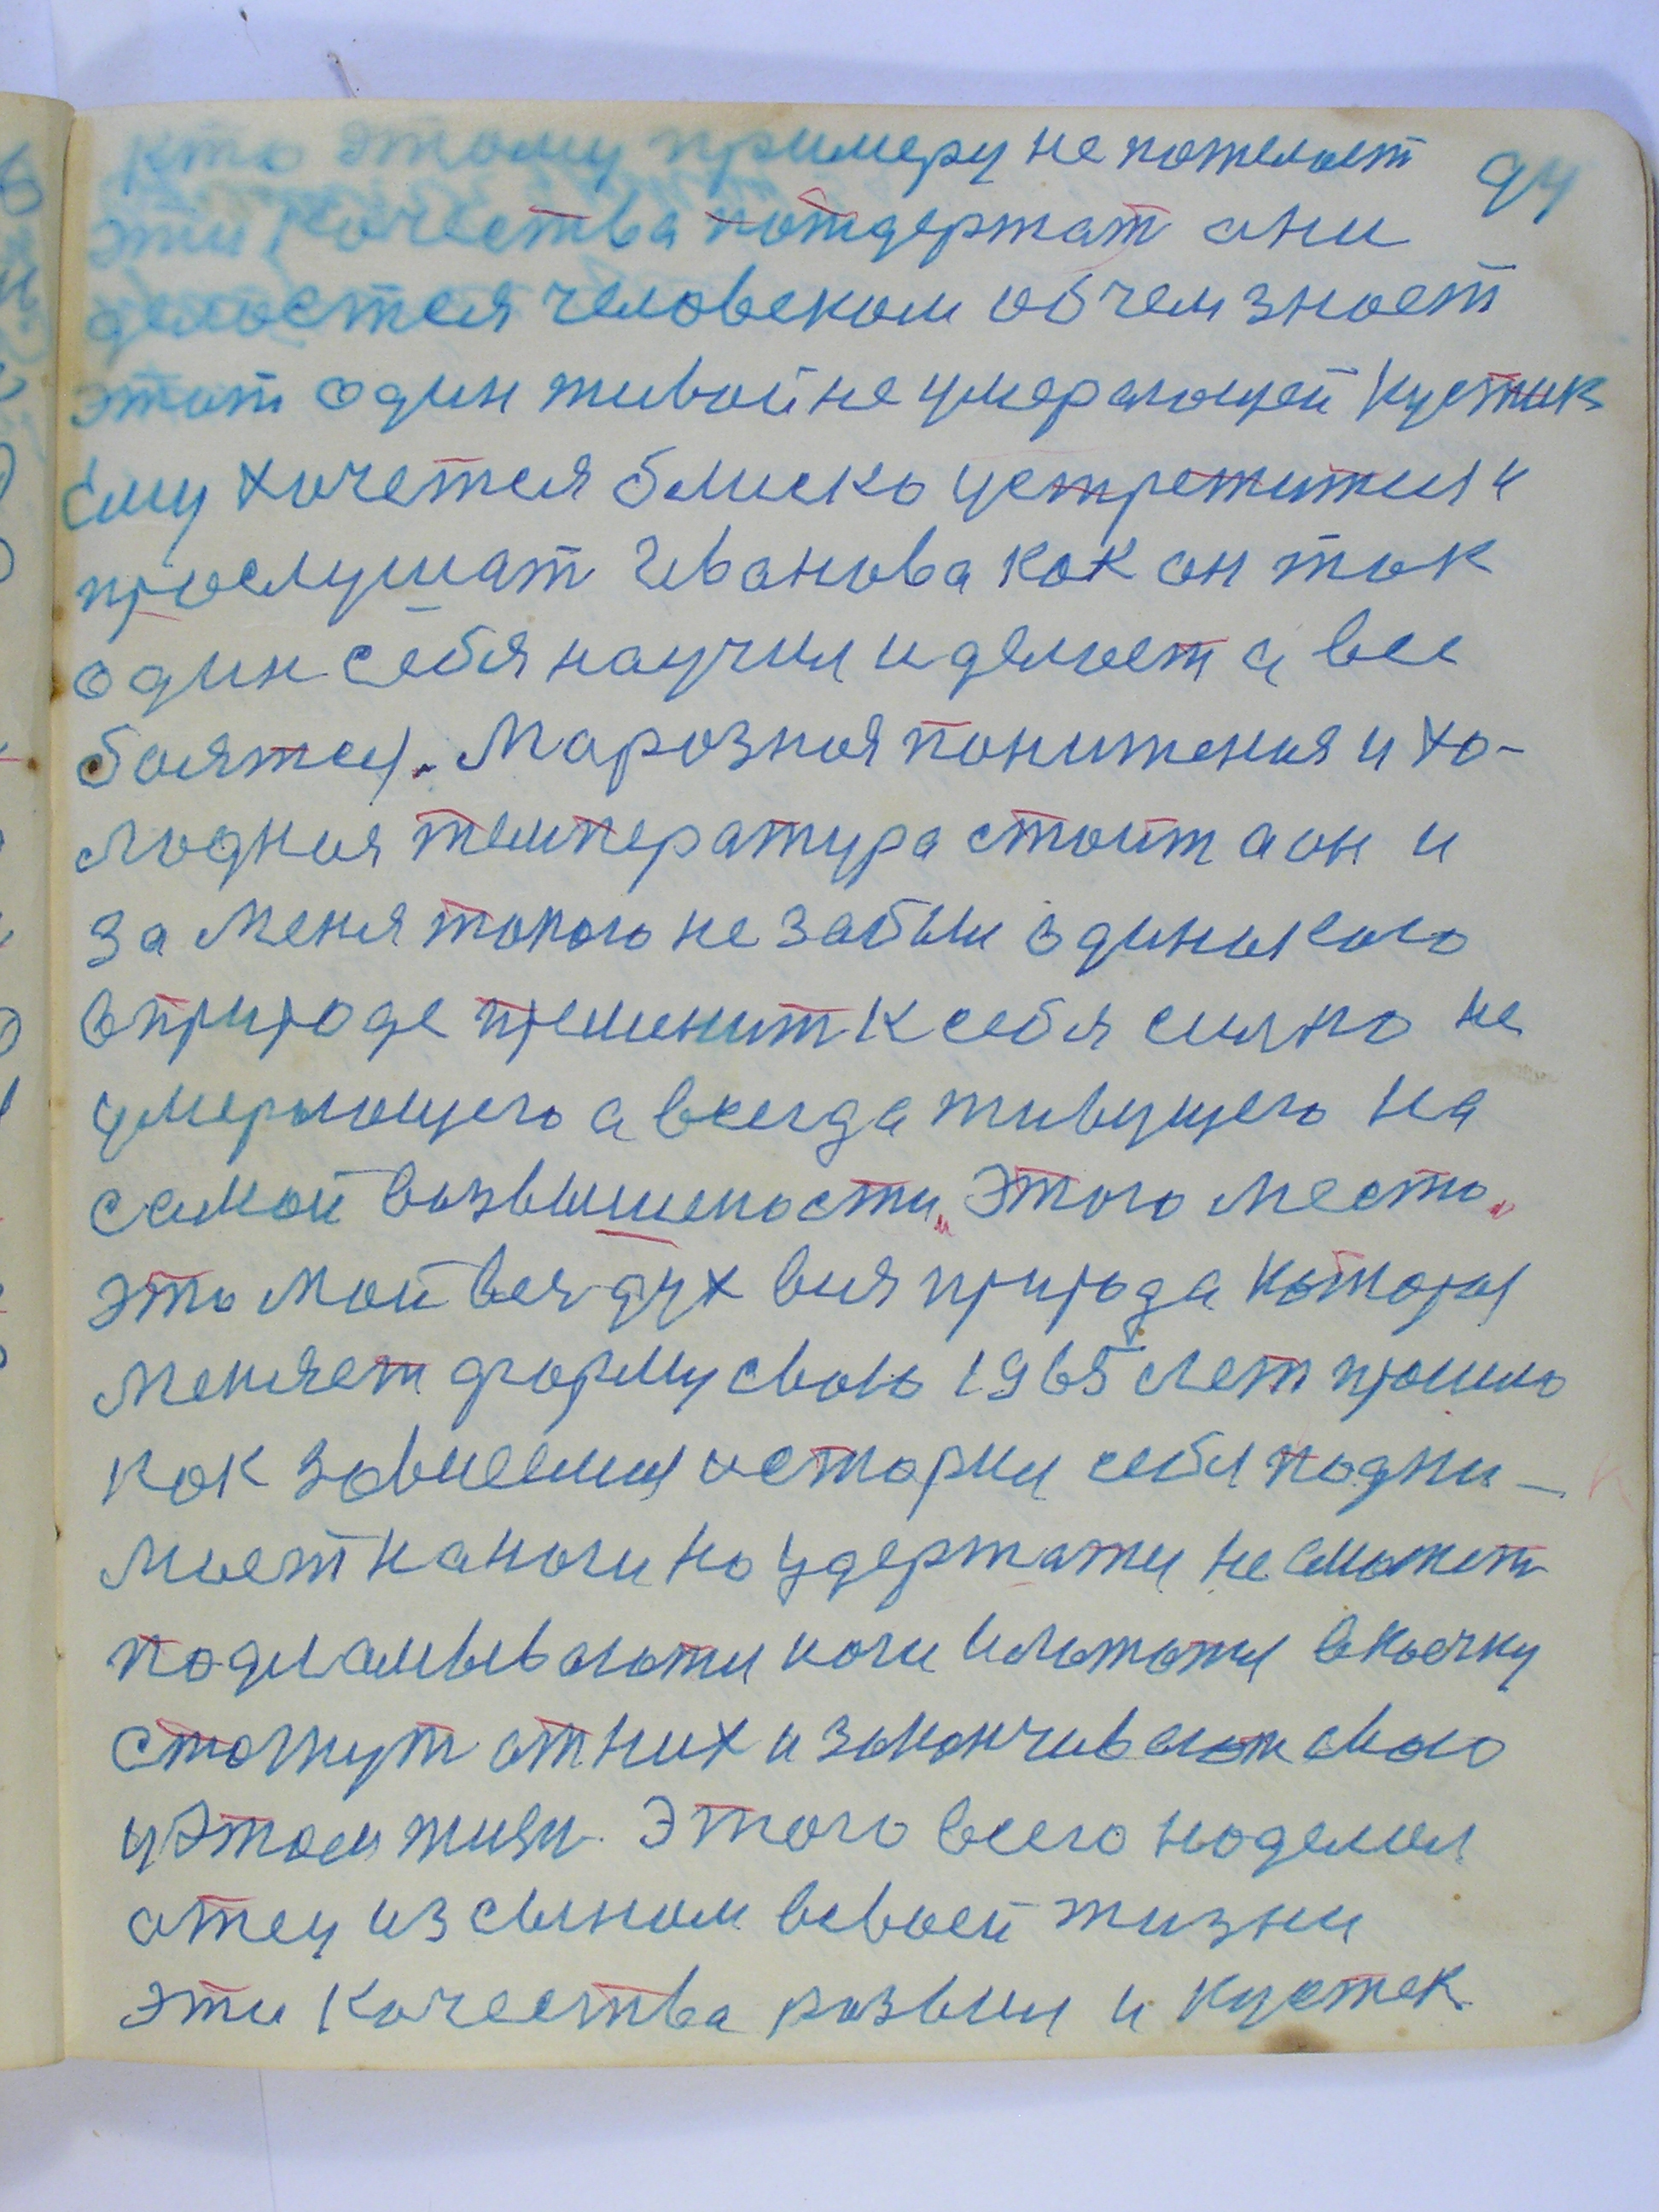 кто этому примеру не пожелает 94
эти качества потдержат они
делается человеком обчем знает
этот один живой не умерающей кустик
Ему хочется блиско устретится и
прослушат Иванова как он так
один себя научил и делает а все
боятся. Марозная понижения и хо-
лодная температура стоит а он и
за меня такого не забыл одинокого
в природе пременит к себя силно не
умерающего а всегда живущего на
самой возвышености. Этого место.
это мой вся дух вся природа которая
меняет форму свою 1965 лет прошло
как зависемая история себя подни-
мает на ноги но удержати не сможет
ноги в коечку
стогнут от них и закончивают свою
у этом жизн. Этого всего наделал
отец из сыном всвоей жизни
эти качества развил и кустек